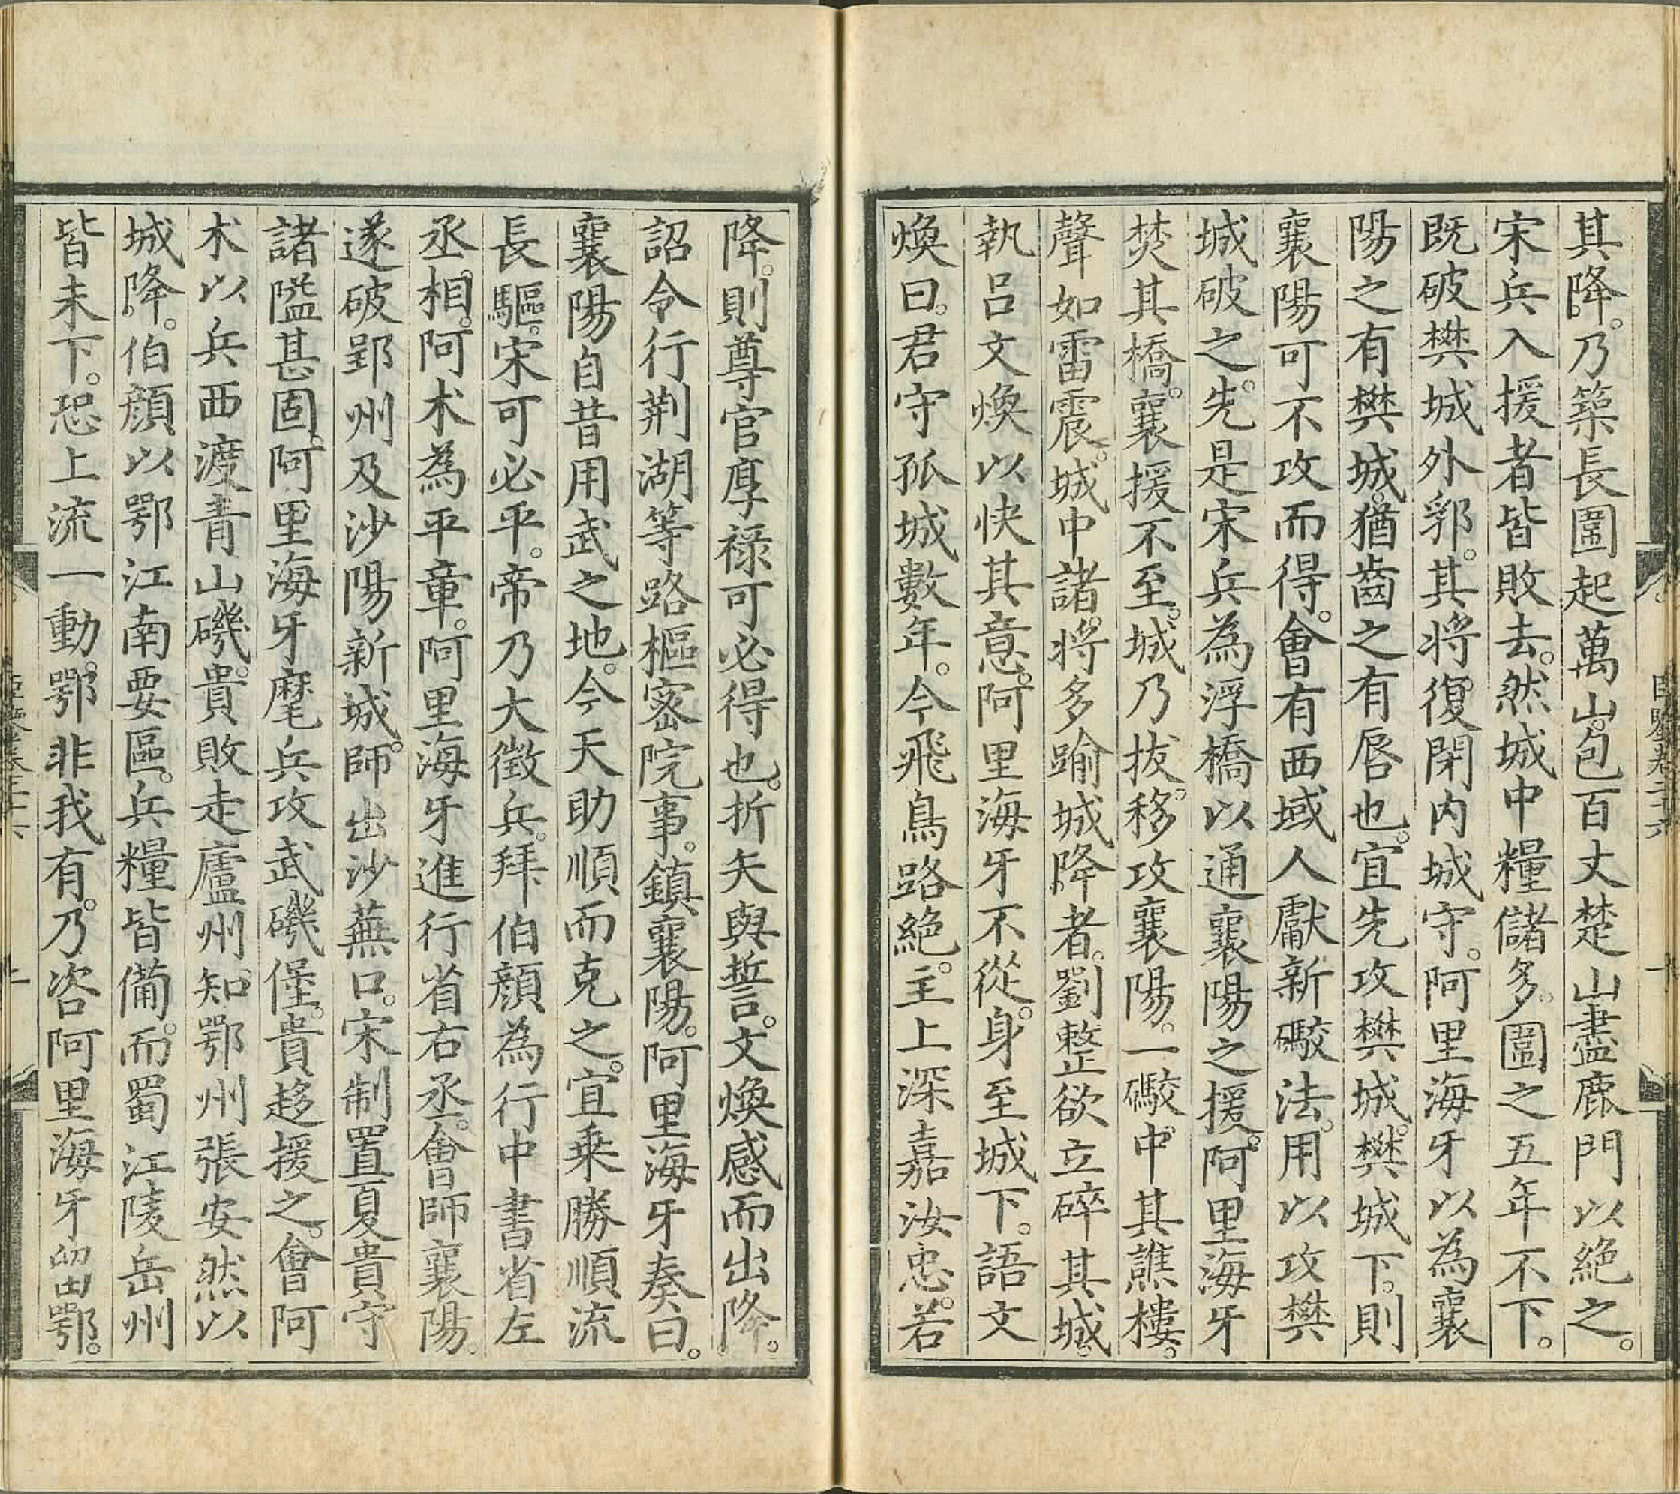 其降。乃築長圍起萬山。包百丈楚山盡鹿門以絕之。
宋兵入援者皆敗去。然城中糧儲多。圍之五年不下。
既破樊城外郛。其將復閉內城守。阿里海牙以為襄
陽之有樊城。猶齒之有唇也。宜先攻樊城。樊城下。則
襄陽可不攻而得。會有西域人獻新礮法。用以攻樊
城破之。先是宋兵為浮橋以通襄陽之援。阿里海牙
焚其橋。襄援不至。城乃拔。移攻襄陽。一礮中其譙樓。
聲如雷震。城中諸將多踰城降者。劉整欲立碎其城。
執呂文煥以快其意。阿里海牙不從。身至城下。語文
煥曰。君守孤城數年。今飛鳥路絕。主上深嘉汝忠。若
降。則尊官厚祿可必得也。折矢與誓。文煥感而出降。
詔令行荆湖等路樞密院事。鎮襄陽。阿里海牙奏曰。
襄陽自昔用武之地。今天助順而克之。宜乗勝順流
長驅。宋可必平。帝乃大徵兵。拜伯顏為行中書省左
丞相。阿术為平章。阿里海牙進行省右丞。會師襄陽。
遂破郢州及沙陽新城。師出沙蕪口。宋制置夏貴守
諸隘甚固。阿里海牙麾兵攻武磯堡。貴趍援之。會阿
术以兵西渡青山磯。貴敗走廬州。知鄂州張安然以
城降。伯顏以鄂江南要區。兵糧皆備。而蜀江陵岳州
皆未下。恐上流一動。鄂非我有。乃咨阿里海牙留鄂。